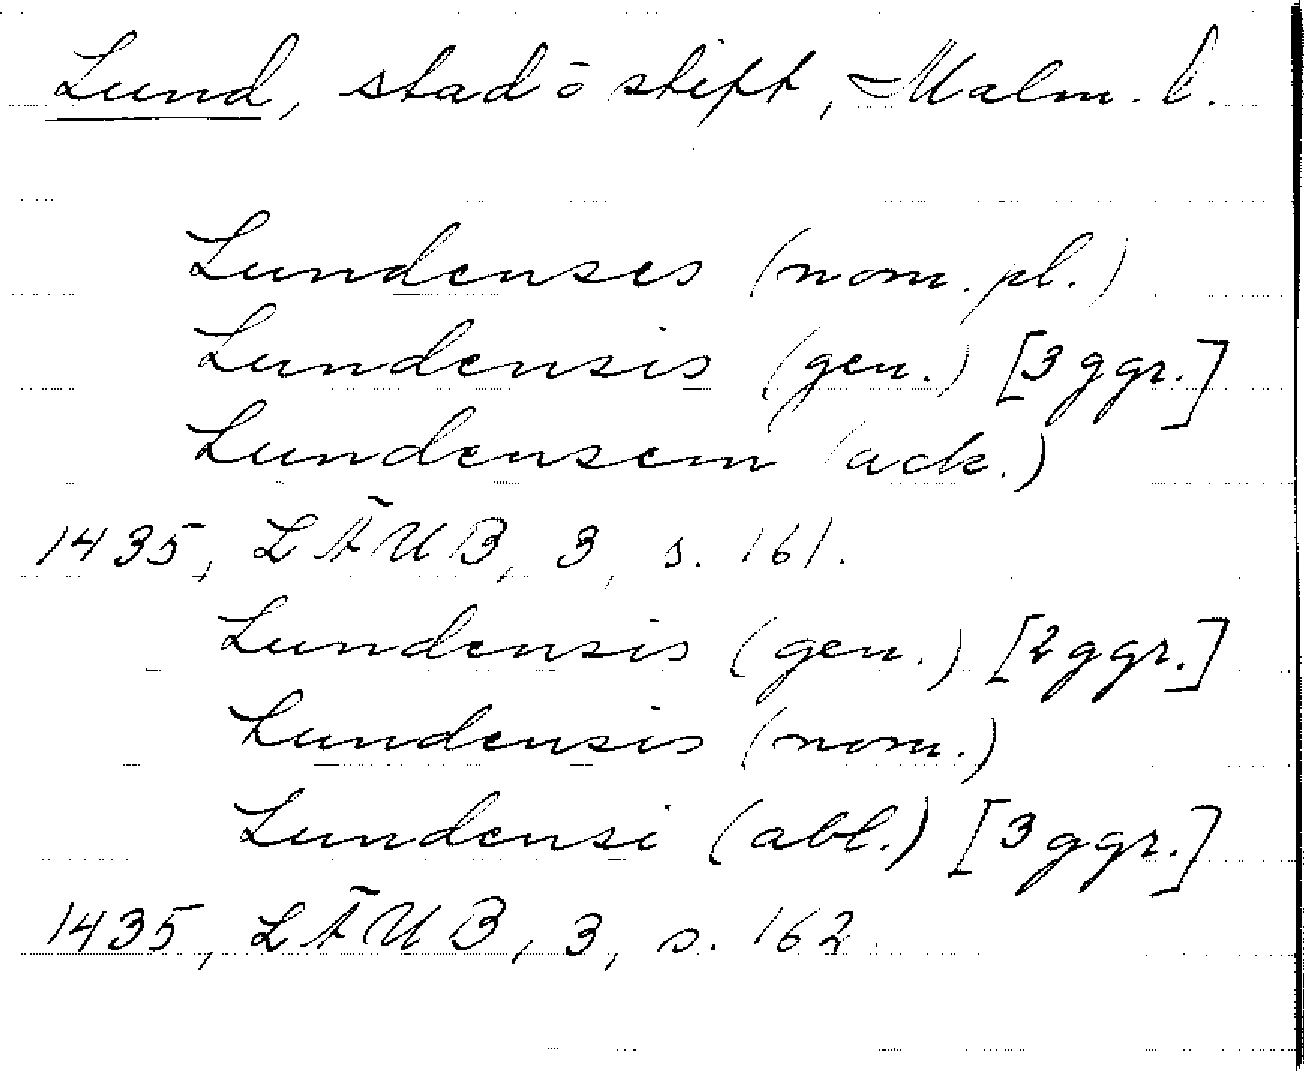 Lund, stad o stift, Malm. l.
Lundenses (nom. pl.)
Lundensis (gen.) [3 ggr.]
Lundensem (ack.)
1435, LÄUB, 3, s. 161.
Lundensis (gen.) [2 ggr.]
Lundensis (nom.)
Lundensi (abl.) [3 ggr.]
1435, LÄUB, 3, s. 162.